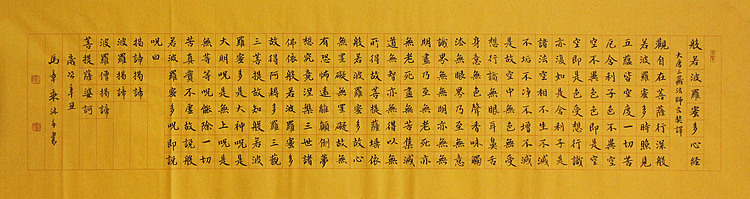 般若波羅蜜多心經
大唐三藏法師玄奘譯
觀自在菩薩行深般
若波羅蜜多時照見
五蘊皆空度一切苦
厄舍利子色不異空
空不異色色即是空
空即是色受想行識
亦復如是舍利子是
諸法空相不生不滅
不垢不淨不增不減
是故空中無色無受
想行識無眼耳鼻舌
身意無色聲香味觸
法無眼界乃至無意
識界無無明亦無無
明盡乃至無老死亦
無老死盡無苦集滅
道無智亦無得以無
所得故菩提薩埵依
般若波羅蜜多故心
無罣礙無罣礙故無
有恐怖遠離顛倒夢
想究竟涅槃三世諸
佛依般若波羅蜜多
故得阿耨多羅三藐
三菩提故知般若波
羅蜜多是大神咒是
大明咒是無上咒是
無等等咒能除一切
苦真實不虛故說般
若波羅蜜多咒即說
咒曰
揭諦揭諦
波羅揭諦
波羅僧揭諦
菩提薩婆訶
歲次辛丑
馬幸來沐手書